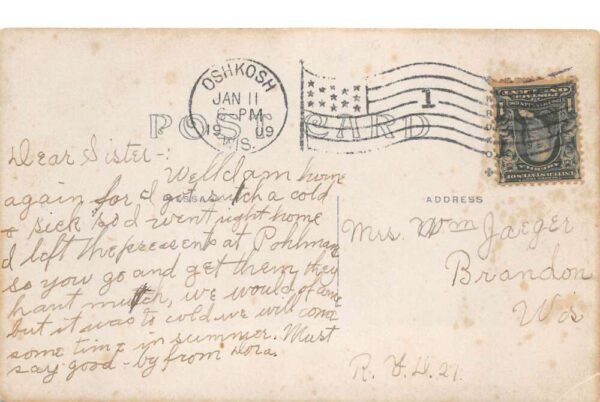 OSHKOSH
JAN 11
PM
1909
WIS.
1
POST CARD
MESSAGE
ADDRESS
Dear Sister-:
Well I am home
again for I got such a cold
& sick so I went right home
I left the presents at Pohlman
so you go and get them they
hant much, we would of come
but it was to cold we will come
some time in summer. Must
say good-by from Dora.
Mrs. Wm Jaeger
Brandon
Wis
R. F. D. 27.